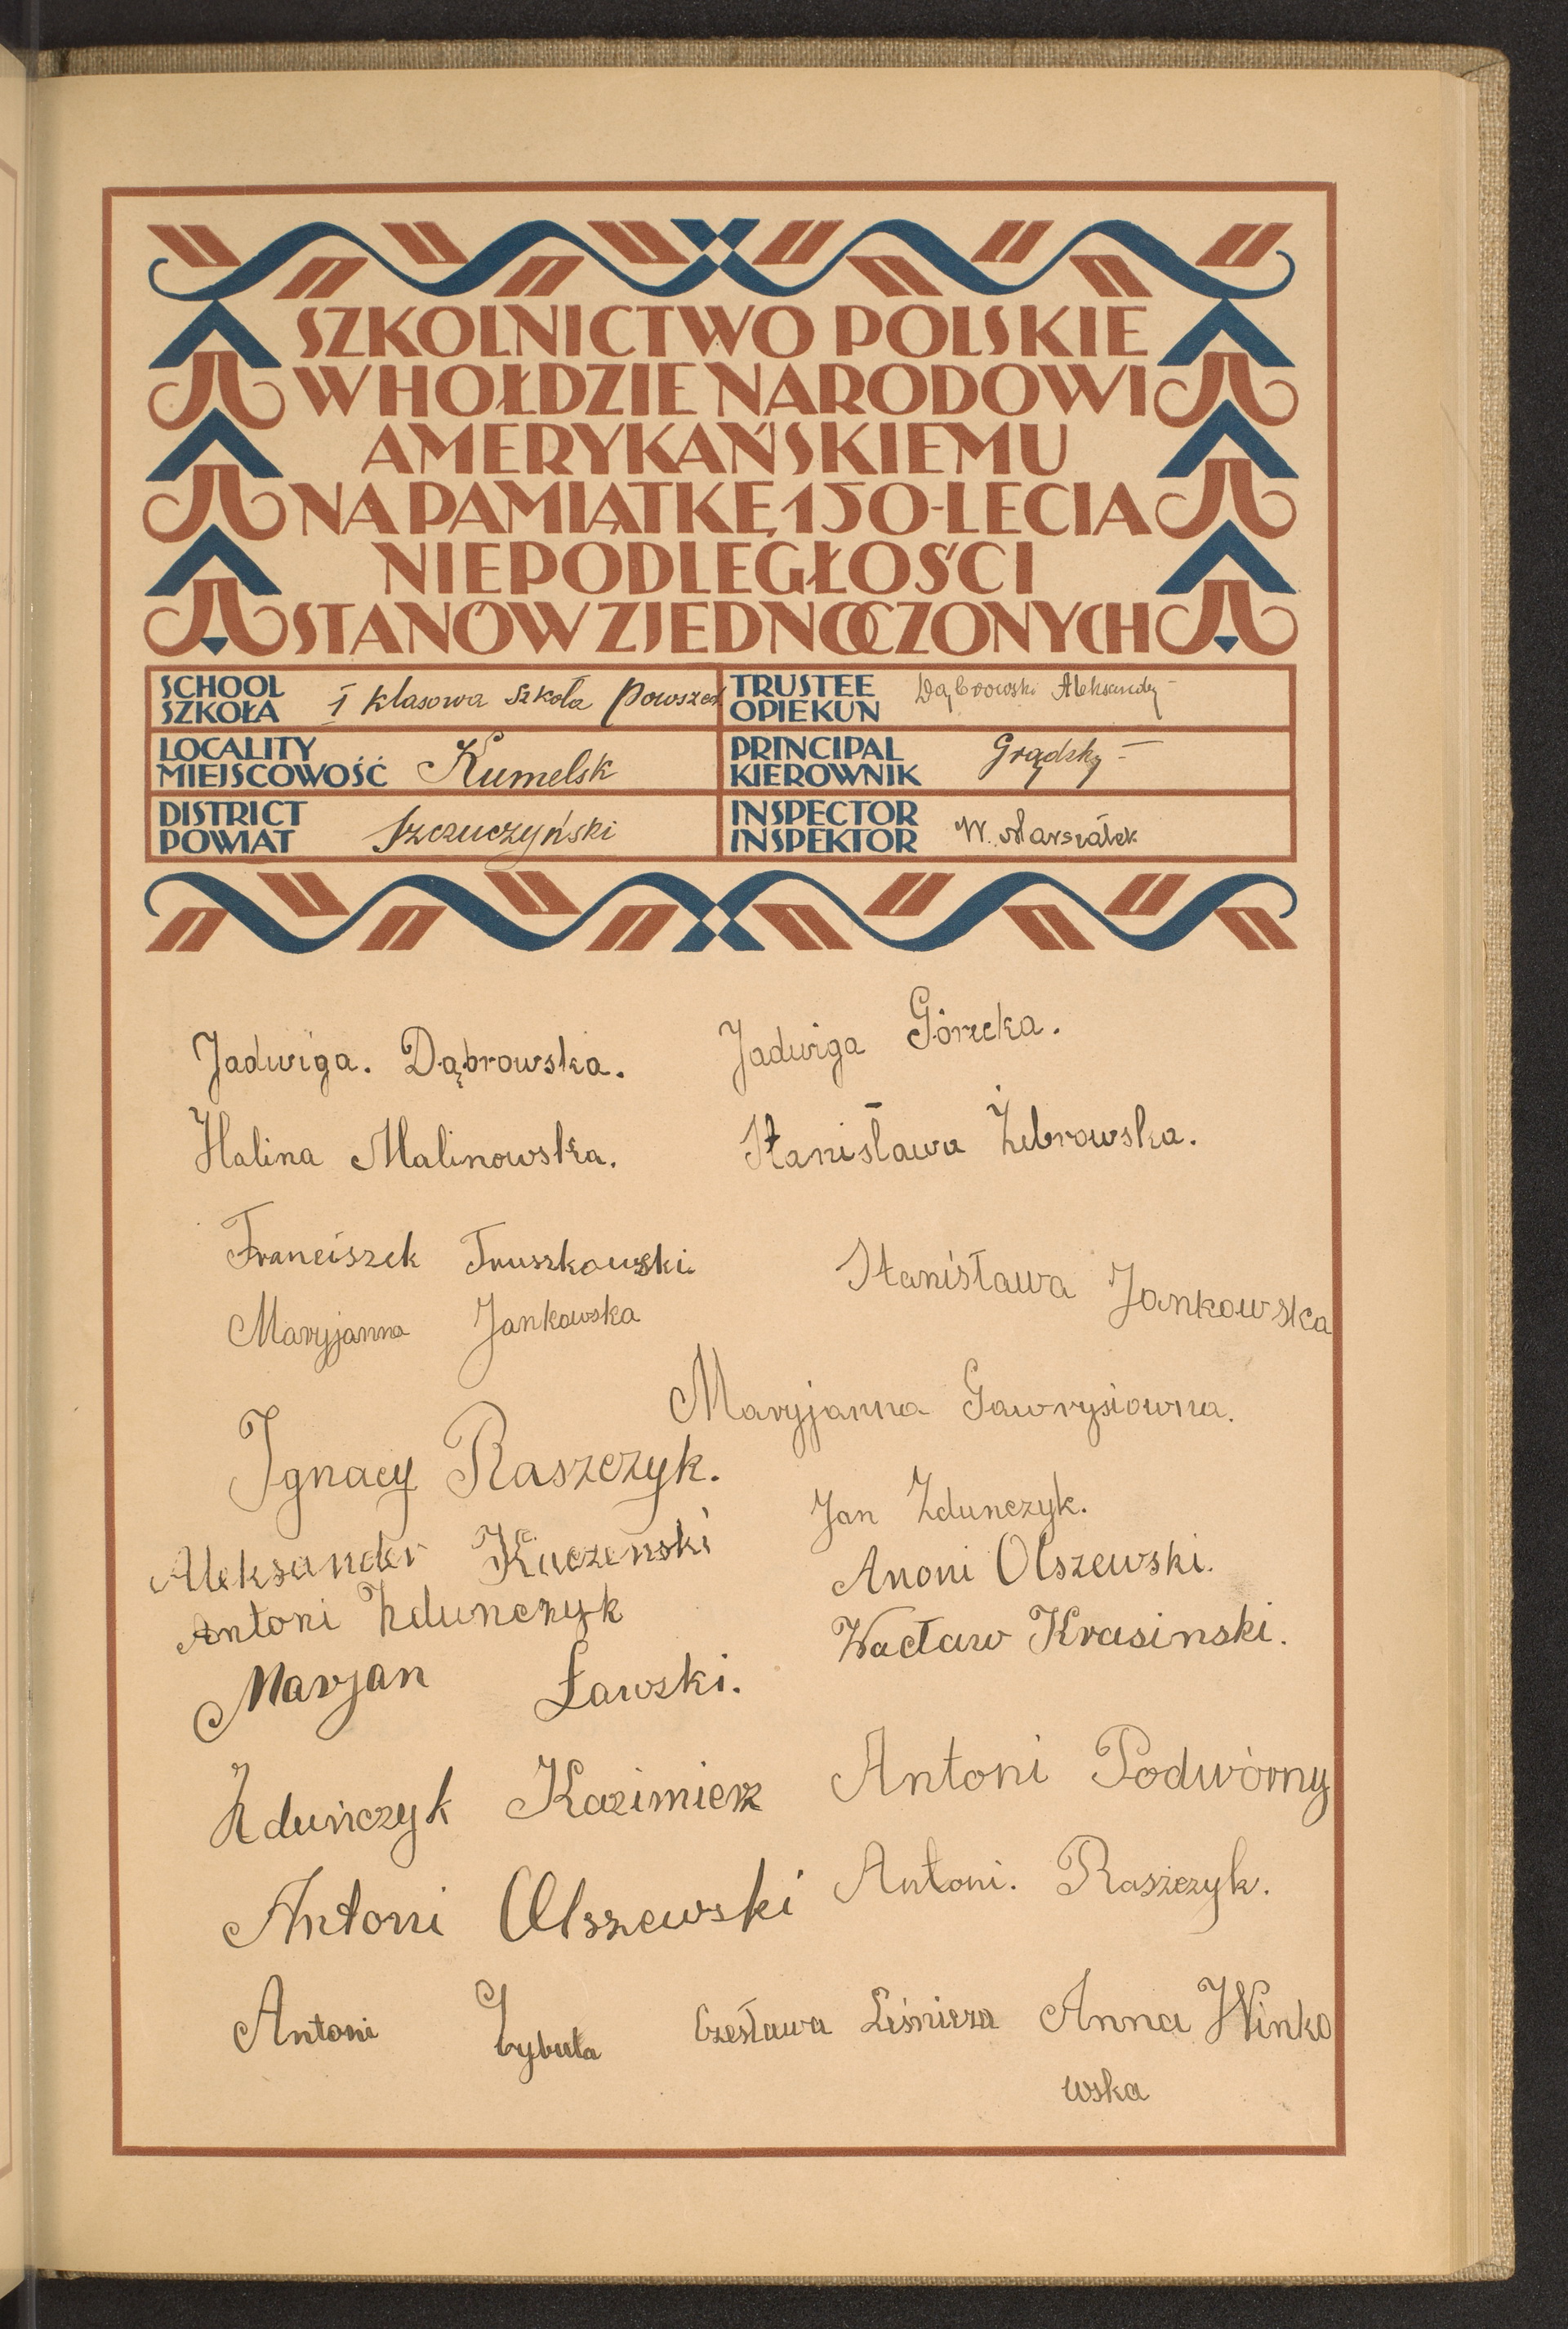 SZKOLNICTWO POLSKIE
W HOŁDZIE NARODOWI
AMERYKAŃSKIEMU
NA PAMIĄTKĘ 150-LECIA
NIEPODLEGŁOŚCI
STANÓW ZJEDNOCZONYCH
SCHOOL
SZKOŁA
I klasowa Szkoła Powszech
TRUSTEE
OPIEKUN
Dąbrowski Aleksandr
LOCALITY
MIEJSCOWOŚĆ
Kumelsk
PRINCIPAL
KIEROWNIK
Grądzky
DISTRICT
POWIAT
Szczuczyński
INSPECTOR
INSPEKTOR
W. Marszałek
Jadwiga. Dąbrowska.
Jadwiga Górecka.
Halina Malinowska.
Stanisława Żebrowska.
Franciszek Truszkowski.
Stanisława Jankowska
Maryjanna Jankowska
Maryjanna Gawrysiowna.
Ignacy Raszczyk.
Jan Zdunczyk.
Aleksander Kuczenski
Anoni Olszewski.
Antoni Zdunczyk
Wacław Krasinski.
Marjan Ławski.
Antoni Podwórny
Zduńczyk Kazimierz
Antoni. Raszczyk.
Antoni Olszewski
Antoni Cybula
Czesława Leśniera
Anna Winko
wska